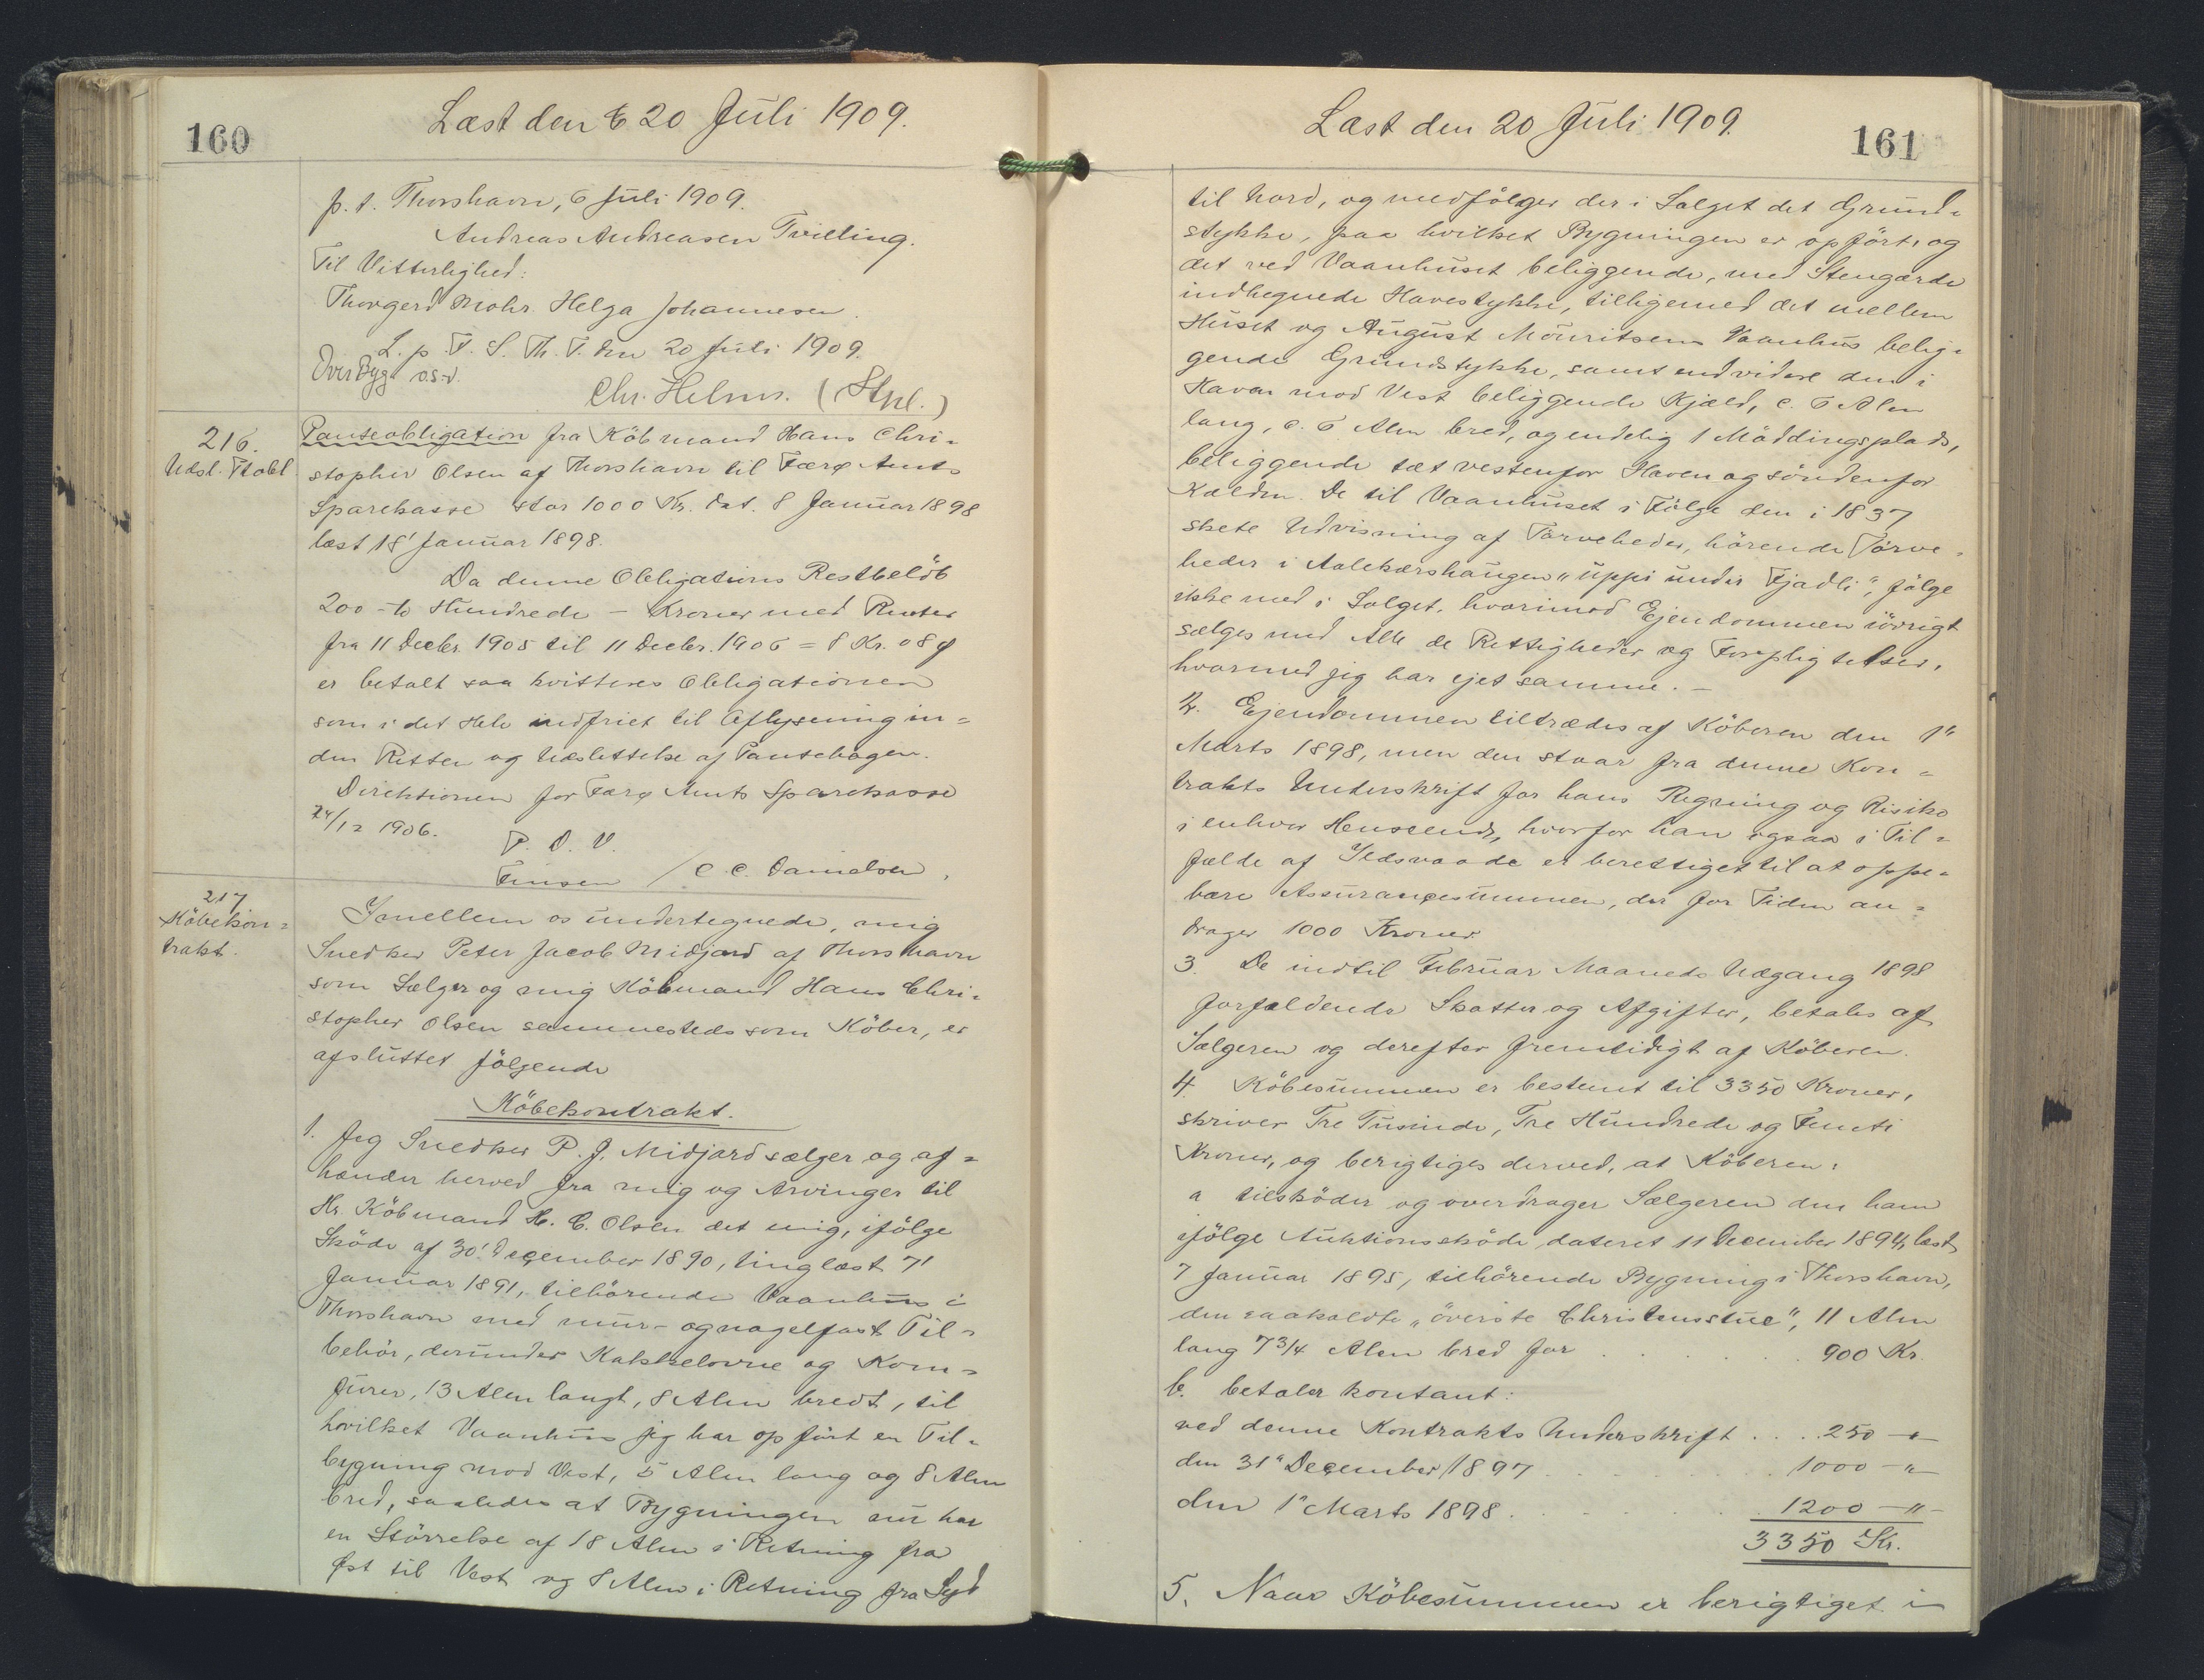 160
Læst den 20 Juli 1909.
p. t. Thorshavn, 6 Juli 1909.
Andreas Andreasen Tvilling.
Til Vitterlighed:
Thorgerd Mohr. Helga Johannesen.
L. p. F. S. Th. T. den 20 Juli 1909.
OverByg o.s.v.
Chr. Helms. (Stpl.)
216.
Udsl. Ptobl.
Panteobligation fra Köbmand Hans Chri=
stopher Olsen af Thorshavn til Færø Amts
Sparekasse stor 1000 Kr. dat. 8 Januar 1898
læst 18' Januar 1898.
Da denne Obligations Restbelöb
200 - to Hundrede - Kroner med Renter
fra 11 Decbr. 1905 til 11 Decbr. 1906 = 8 Kr. 08 Ø
er betalt saa kvitteres Obligationen
som i det Hele indfriet til Aflysning in=
den Retten og Udslettelse af Pantebogen.
Direktionen for Færø Amts Sparekasse
24/12 1906.
P. D. V.
Finsen / C. C. Danielsen.
217
Köbekon=
trakt.
Imellem os undertegnede, mig
Snedker Peter Jacob Midjord af Thorshavn
som Sælger og mig Köbmand Hans Chri=
stopher Olsen sammesteds som Köber, er
afsluttet fölgende
Köbekontrakt.
1. Jeg Snedker P. J. Midjord sælger og af=
hænder herved fra mig og Arvinger til
Hr. Köbmand H. C. Olsen det mig, ifölge
Sköde af 30' December 1890, tinglæst 7'
Januar 1891, tilhörende Vaanhus i
Thorshavn med mur- og nagelfast Til=
behör, derunder Kakkelovne og Kom=
furer, 13 Alen langt, 8 Alen bredt, til
hvilket Vaanhus jeg har opfört en Til=
bygning mod Vest, 5 Alen lang og 8 Alen
bred, saaledes at Bygningen nu har
en Störrelse af 18 Alen i Retning fra
Øst til Vest og 8 Alen i Retning fra Syd
Læst den 20 Juli 1909.
161
til Nord, og medfölger der i Salget det Grund=
stykke, paa hvilket Bygningen er opfört, og
det ved Vaanhuset beliggende, med Stengærde
indhegnede Havestykke, tilligemed det mellem
Huset og August Mouritsens Vaanhus belig=
gende Grundstykke, samt endvidere den i
Haven mod Vest beliggende Kjæld, c. 6 Alen
lang, c. 6 Alen bred, og endelig 1 Möddingsplads,
beliggende tæt vestenfor Haven og söndenfor
Kælden. De til Vaanhuset i Fölge den i 1837
skete Udvisning af Törveheder, hörende Törve=
heder i Aalekærshaugen "uppi undir Fjadli", fölge
ikke med i Salget, hvorimod Ejendommen iövrigt
sælges med Alle de Rettigheder og Forpligtelser,
hvormed jeg har ejet samme. -
2. Ejendommen tiltrædes af Köberen den 1"
Marts 1898, men den staar fra denne Kon=
trakts Underskrift for hans Regning og Risiko
i enhver Henseende, hvorfor han ogsaa i Til=
fælde af Ildsvaade er berettiget til at oppe=
bære Assurancesummen, der for Tiden an=
drager 1000 Kroner.
3. De indtil Februar Maaneds Udgang 1898
forfaldende Skatter og Afgifter, betales af
Sælgeren og derefter fremtidigt af Köberen.
4. Köbesummen er bestemt til 3350 Kroner,
skriver Tre Tusinde, Tre Hundrede og Femti
Kroner, og berigtiges derved, at Köberen:
a tilsköder og overdrager Sælgeren den ham
ifölge Auktionssköde dateret 11 December 1894, læst
7 Januar 1895, tilhörende Bygning i Thorshavn,
den saakaldte "överste Christensstue", 11 Alen
lang 7 3/4 Alen bred for . . . . . . 900 Kr.
b. betaler kontant:
ved denne Kontrakts Underskrift . . . 250 - "
den 31" December 1897 . . . . . . 1000 - "
den 1" Marts 1898 . . . . . . 1200 - " -
3350 Kr.
5. Naar Köbesummen er berigtiget i